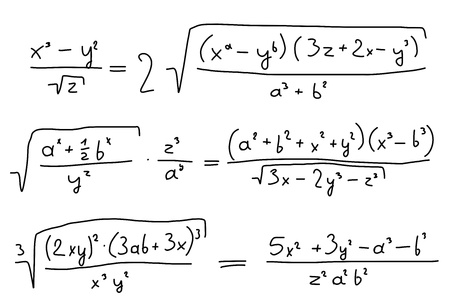 (x³ − y²)/√z = 2 √((xᵅ − yᵇ)(3z + 2x − y³)/(a³ + b²))
√((aˣ + ½ bˣ)/y²) · z³/a³ = (a² + b² + x² + y²)(x³ − b³)/√(3x − 2y³ − z²)
∛((2xy)² · (3ab + 3x)³/(x³ y²)) = (5x² + 3y² − a³ − b³)/(z² a² b²)